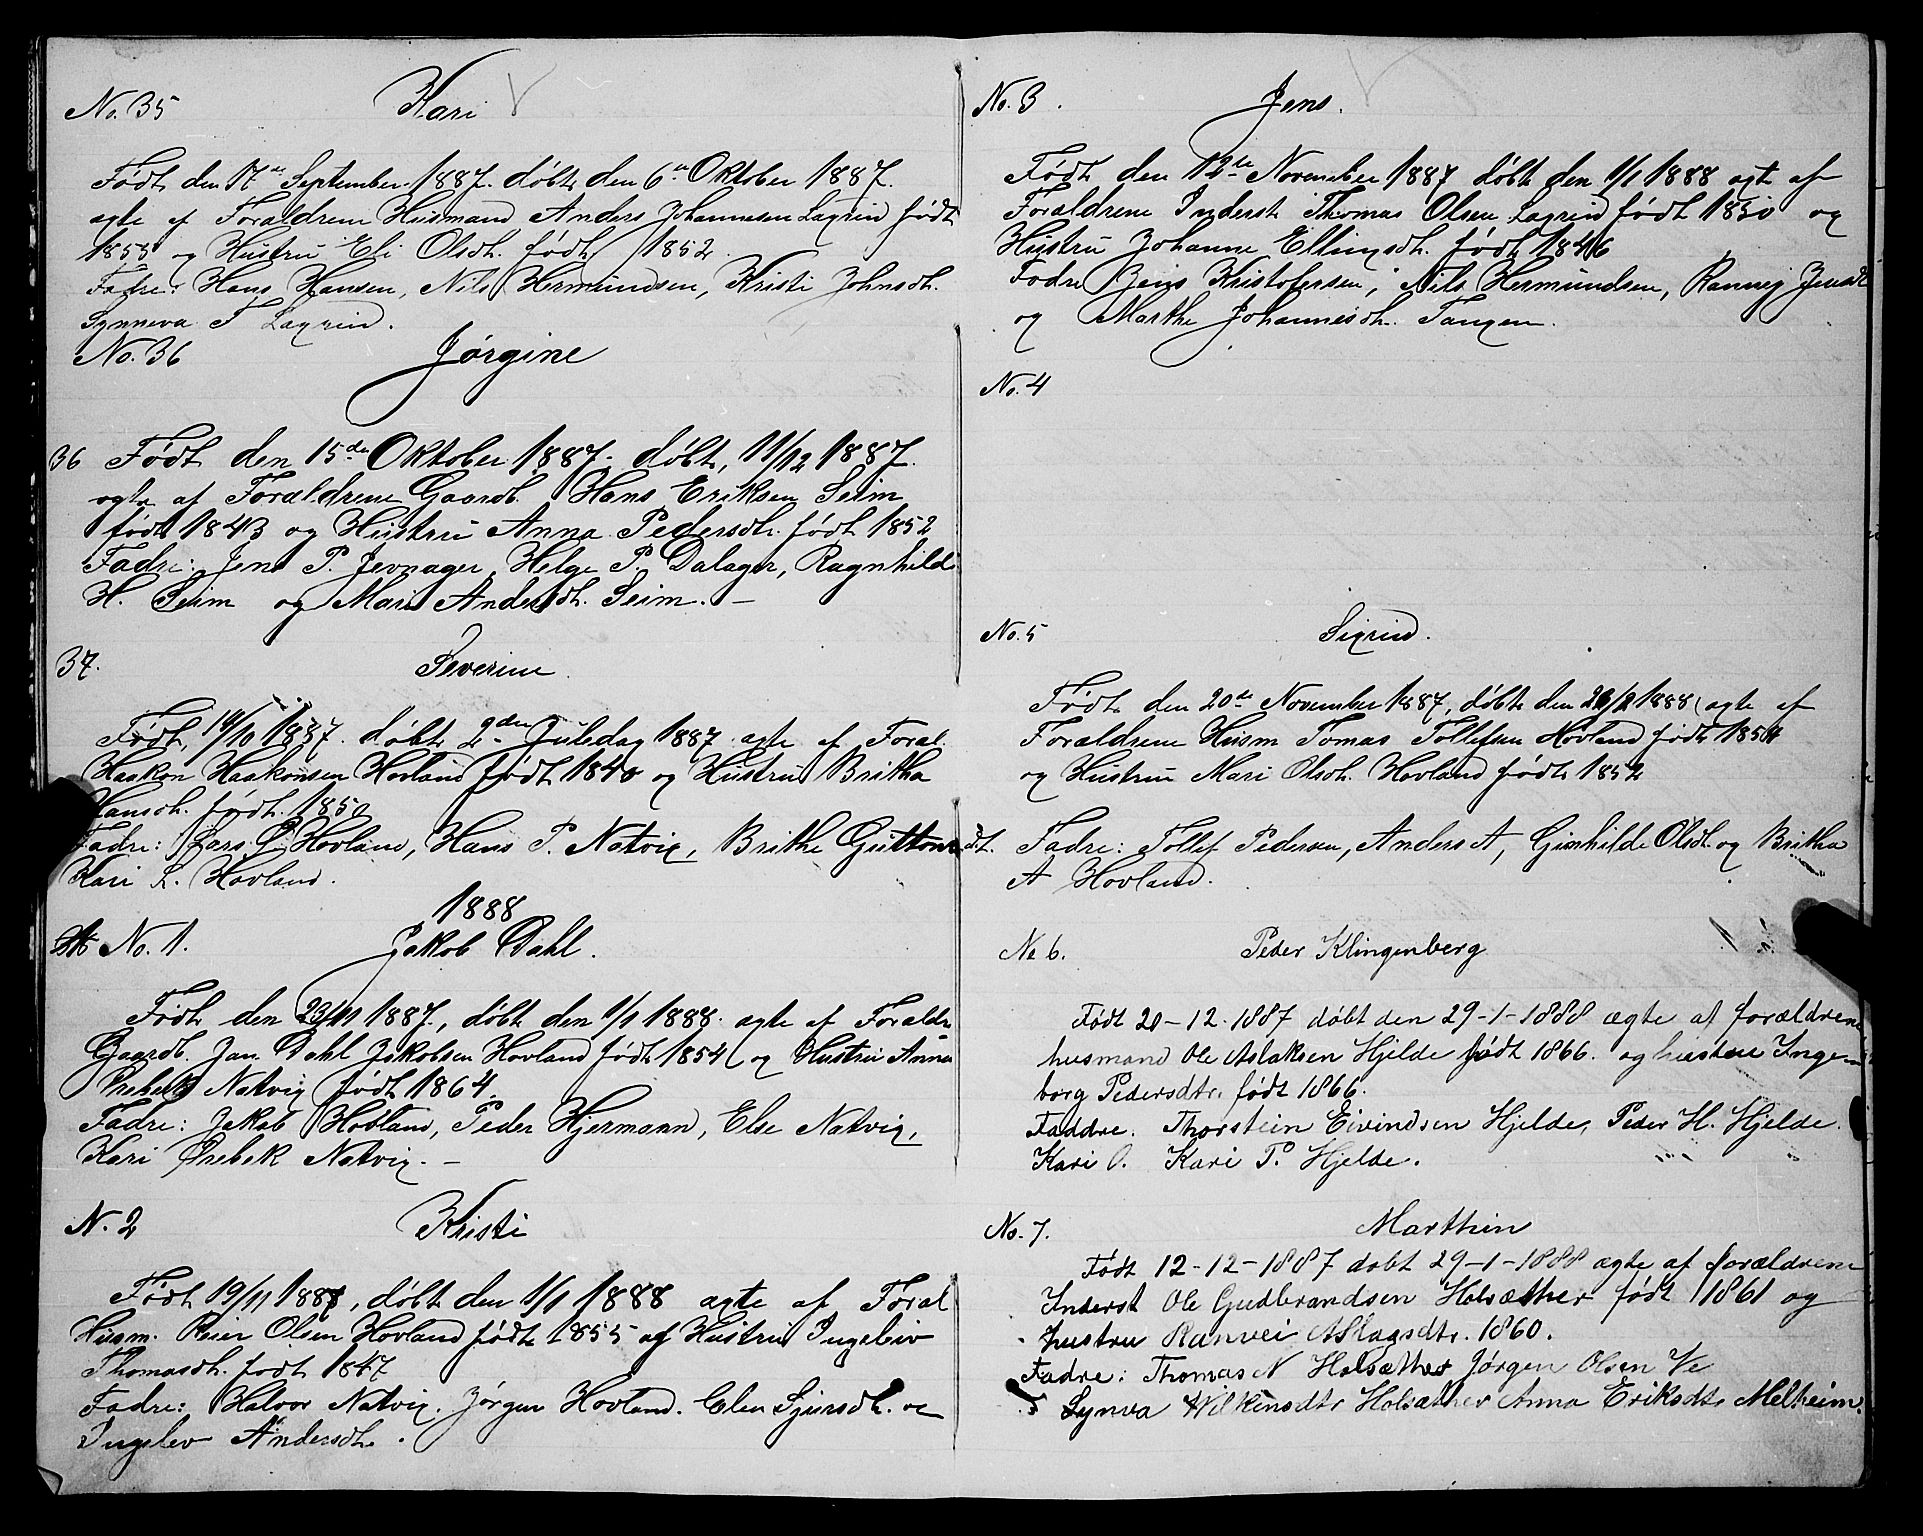 No. 35 Kari
Født den 17de September 1887. døbt den 6te Oktober 1887.
ægte af Forældrene Husmand Anders Johannesen Lægrid født
1855 og Hustru Eli Olsdt. født 1852.
Fadre: Hans Hansen, Nils Hermundsen, Kristi Johnsdt.
Synneva T Lægrid.
No. 36 Jørgine
36 Født den 15de Oktober 1887. døbt, 11/12 1887.
ægte af Forældrene Gaardb. Hans Eriksen Seim
født 1843 og Hustru Anna Pedersdt. født 1852
Fadre: Jens P. Jevnager, Helge P. Dalager, Ragnhild
H. Seim og Mari Andersdt. Seim. —
37. Severine
Født, 14/10 1887. døbt 2den Juledag 1887 ægte af Foræl.
Haakon Haakonsen Hovland født 1840 og Hustru Britha
Hansdt. født 1850
Fadre: Lars O Hovland, Hans P. Natvig, Brithe Guttormsdt.
Kari L. Hovland.
1888
No. 1. Jakob Dahl.
Født den 23/11 1887., døbt den 1/1 1888. ægte af Forældr
Gaardb. Jan Dahl Jakobsen Hovland født 1854 og Hustru Anna
Ørebek Natvig født 1864.
Fadre: Jakob Hovland, Peder Hjermann, Else Natvig,
Kari Ørebek Natvig. —
N. 2 Kristi
Født 19/11 1887, døbt den 1/1 1888 ægte af Foræl
Husm. Reier Olsen Hovland født 1855 og Hustru Ingeleiv
Thomasdt. født 1847
Fadre: Halvor Natvig. Jørgen Hovland. Elen Sjursdt. og
Ingelev Andersdt.
No. 3. Jens.
Født den 12te November 1887 døbt den 1/1 1888 ægte af
Forældrene Inderst Thomas Olsen Lægrid født 1850 og
Hustru Johanne Ellingsdt. født 1846
Fadre Jens Kristofersen, Nils Hermundsen, Rannig Jensdt
og Marthe Johannesdt. Tangen.
No. 4
No. 5 Sigrid.
Født den 20de November 1887, døbt den 26/2 1888 ægte af
Forældrene Husm Tomas Tollefsen Hovland født 1854
og Hustru Mari Olsdt. Hovland født 1852
Fadre: Tollef Pedersen, Anders A, Gunhilde Olsdt. og Britha
A Hovland.
No 6. Peder Klingenberg
Født 20-12-1887 døbt den 29-1-1888 ægte af forældrene
husmand Ole Aslaksen Hjelde født 1866. og hustru Inge
borg Pedersdtr. født 1866.
Faddre. Thorstein Eivindsen Hjelde, Peder H. Hjelde.
Kari O. Kari P. Hjelde.
No. 7. Marthin
Født 12-12-1887 døbt 29-1-1888 ægte af forældrene
Inderst Ole Gudbrandsen Holsæther født 1861 og
hustru Ranvei Aslagsdtr. 1860.
Fadre: Thomas N Holsæther Jørgen Olsen Ve
Synva Wilkensdtr Holsæther Anna Eriksdtr Melheim.